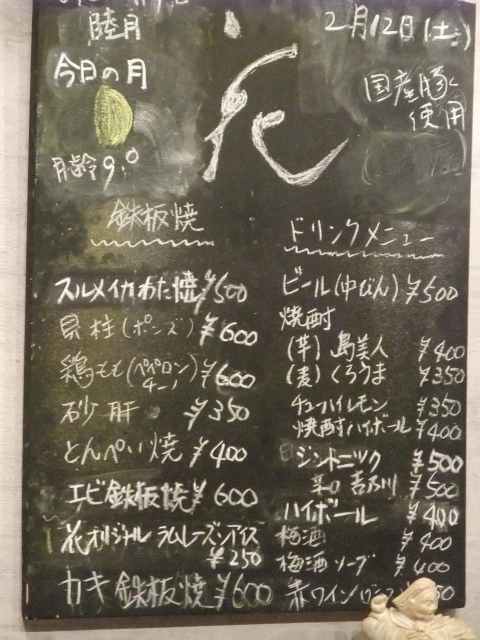 睦月
2月12日(土)
花
今日の月
国産豚
使用
月齢9.0
鉄板焼
スルメイカわた焼¥500
貝柱(ポンズ)¥600
鶏もも(ペペロンチーノ)¥600
砂肝 ¥350
とんぺい焼 ¥400
エビ鉄板焼¥600
花オリジナルラムレーズンアイス
¥250
カキ鉄板焼¥600
ドリンクメニュー
ビール(中びん)¥500
焼酎
(芋)島美人 ¥400
(麦)くろうま ¥350
チューハイレモン ¥350
焼酎ハイボール ¥400
ジントニック ¥500
辛口 吉乃川 ¥500
ハイボール ¥400
梅酒 ¥400
梅酒ソーダ ¥400
赤ワイン